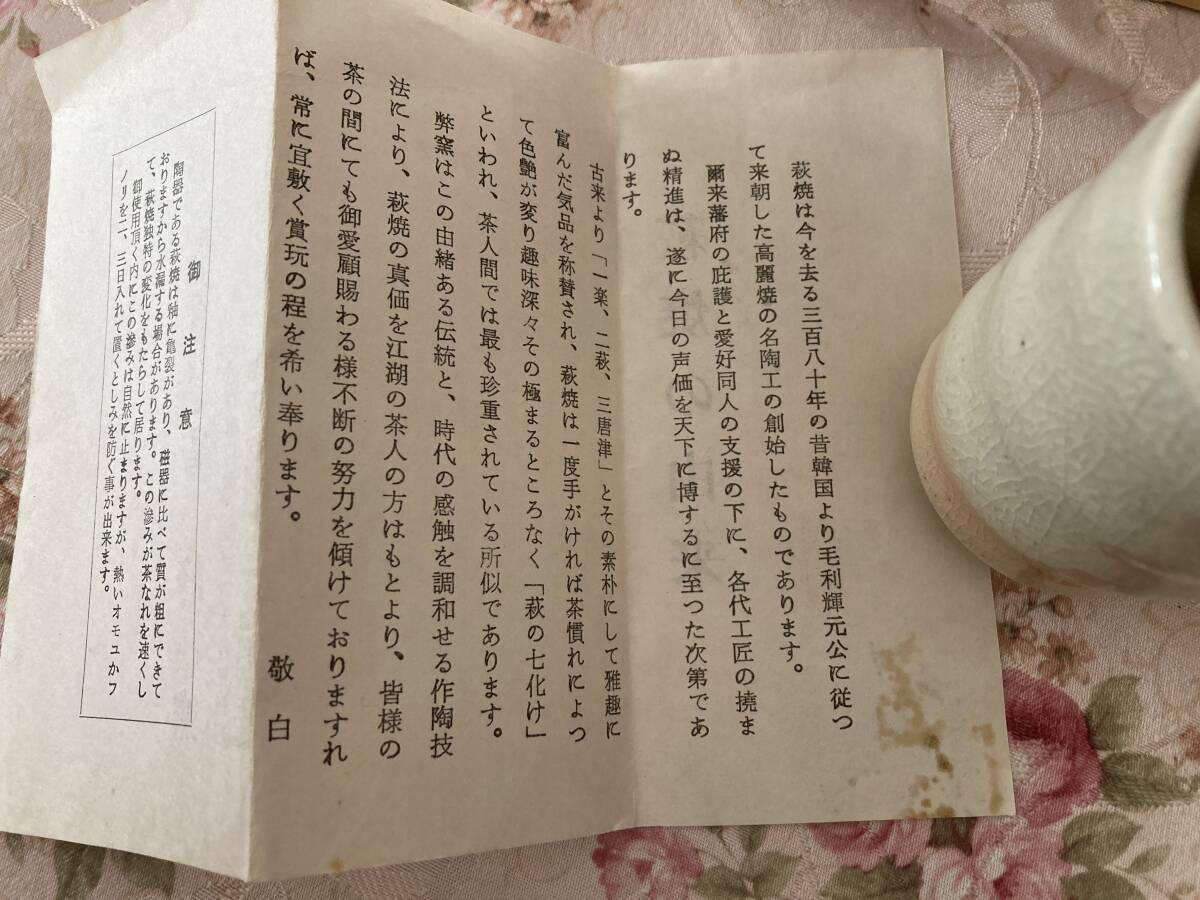 萩焼は今を去る三百八十年の昔韓国より毛利輝元公に従つ
て来朝した高麗焼の名陶工の創始したものであります。
爾来藩府の庇護と愛好同人の支援の下に、各代工匠の撓ま
ぬ精進は、遂に今日の声価を天下に博するに至つた次第であ
ります。
古来より「一楽、二萩、三唐津」とその素朴にして雅趣に
富んだ気品を称賛され、萩焼は一度手がければ茶慣れによつ
て色艶が変り趣味深々その極まるところなく「萩の七化け」
といわれ、茶人間では最も珍重されている所似であります。
弊窯はこの由緒ある伝統と、時代の感触を調和せる作陶技
法により、萩焼の真価を江湖の茶人の方はもとより、皆様の
茶の間にても御愛顧賜わる様不断の努力を傾けておりますれ
ば、常に宜敷く賞玩の程を希い奉ります。
敬白
御注意
陶器である萩焼は釉に亀裂があり、磁器に比べて質が粗にできて
おりますから水漏する場合があります。この滲みが茶なれを速くし
て、萩焼独特の変化をもたらして居ります。
御使用頂く内にこの滲みは自然に止まりますが、熱いオモユかフ
ノリを二、三日入れて置くとしみを防ぐ事が出来ます。